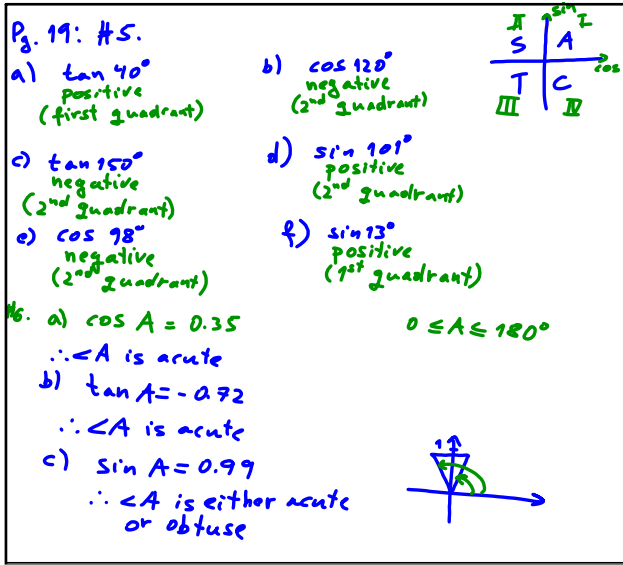 Pg. 19: #5.
II sin I
S A
cos
T C
III IV
a) tan 40°
positive
(first quadrant)
b) cos 120°
negative
(2nd quadrant)
c) tan 150°
negative
(2nd quadrant)
d) sin 101°
positive
(2nd quadrant)
e) cos 98°
negative
(2nd quadrant)
f) sin 13°
positive
(1st quadrant)
#6. a) cos A = 0.35
0 ≤ A ≤ 180°
∴ ∠A is acute
b) tan A = - 0.72
∴ ∠A is acute
c) sin A = 0.99
∴ ∠A is either acute
or obtuse
1